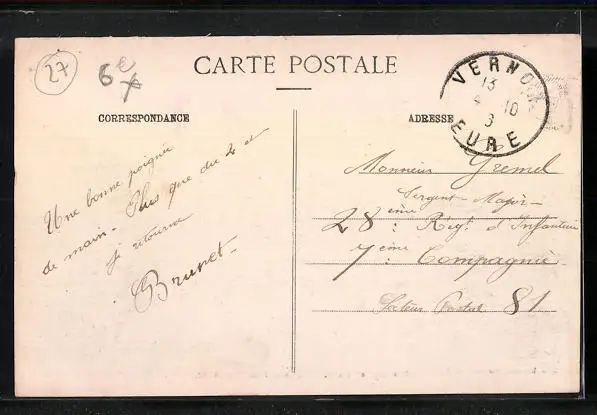 27
6€
CARTE POSTALE
CORRESPONDANCE
ADRESSE
VERNON
13
4 10
3
EURE
Une bonne poignée
de main. Plus que du 2 et
je retourne
Brunet
Monsieur Gremel
Sergent Major
28ème Regt d'Infanterie
7ème Compagnie
Secteur Postal 81